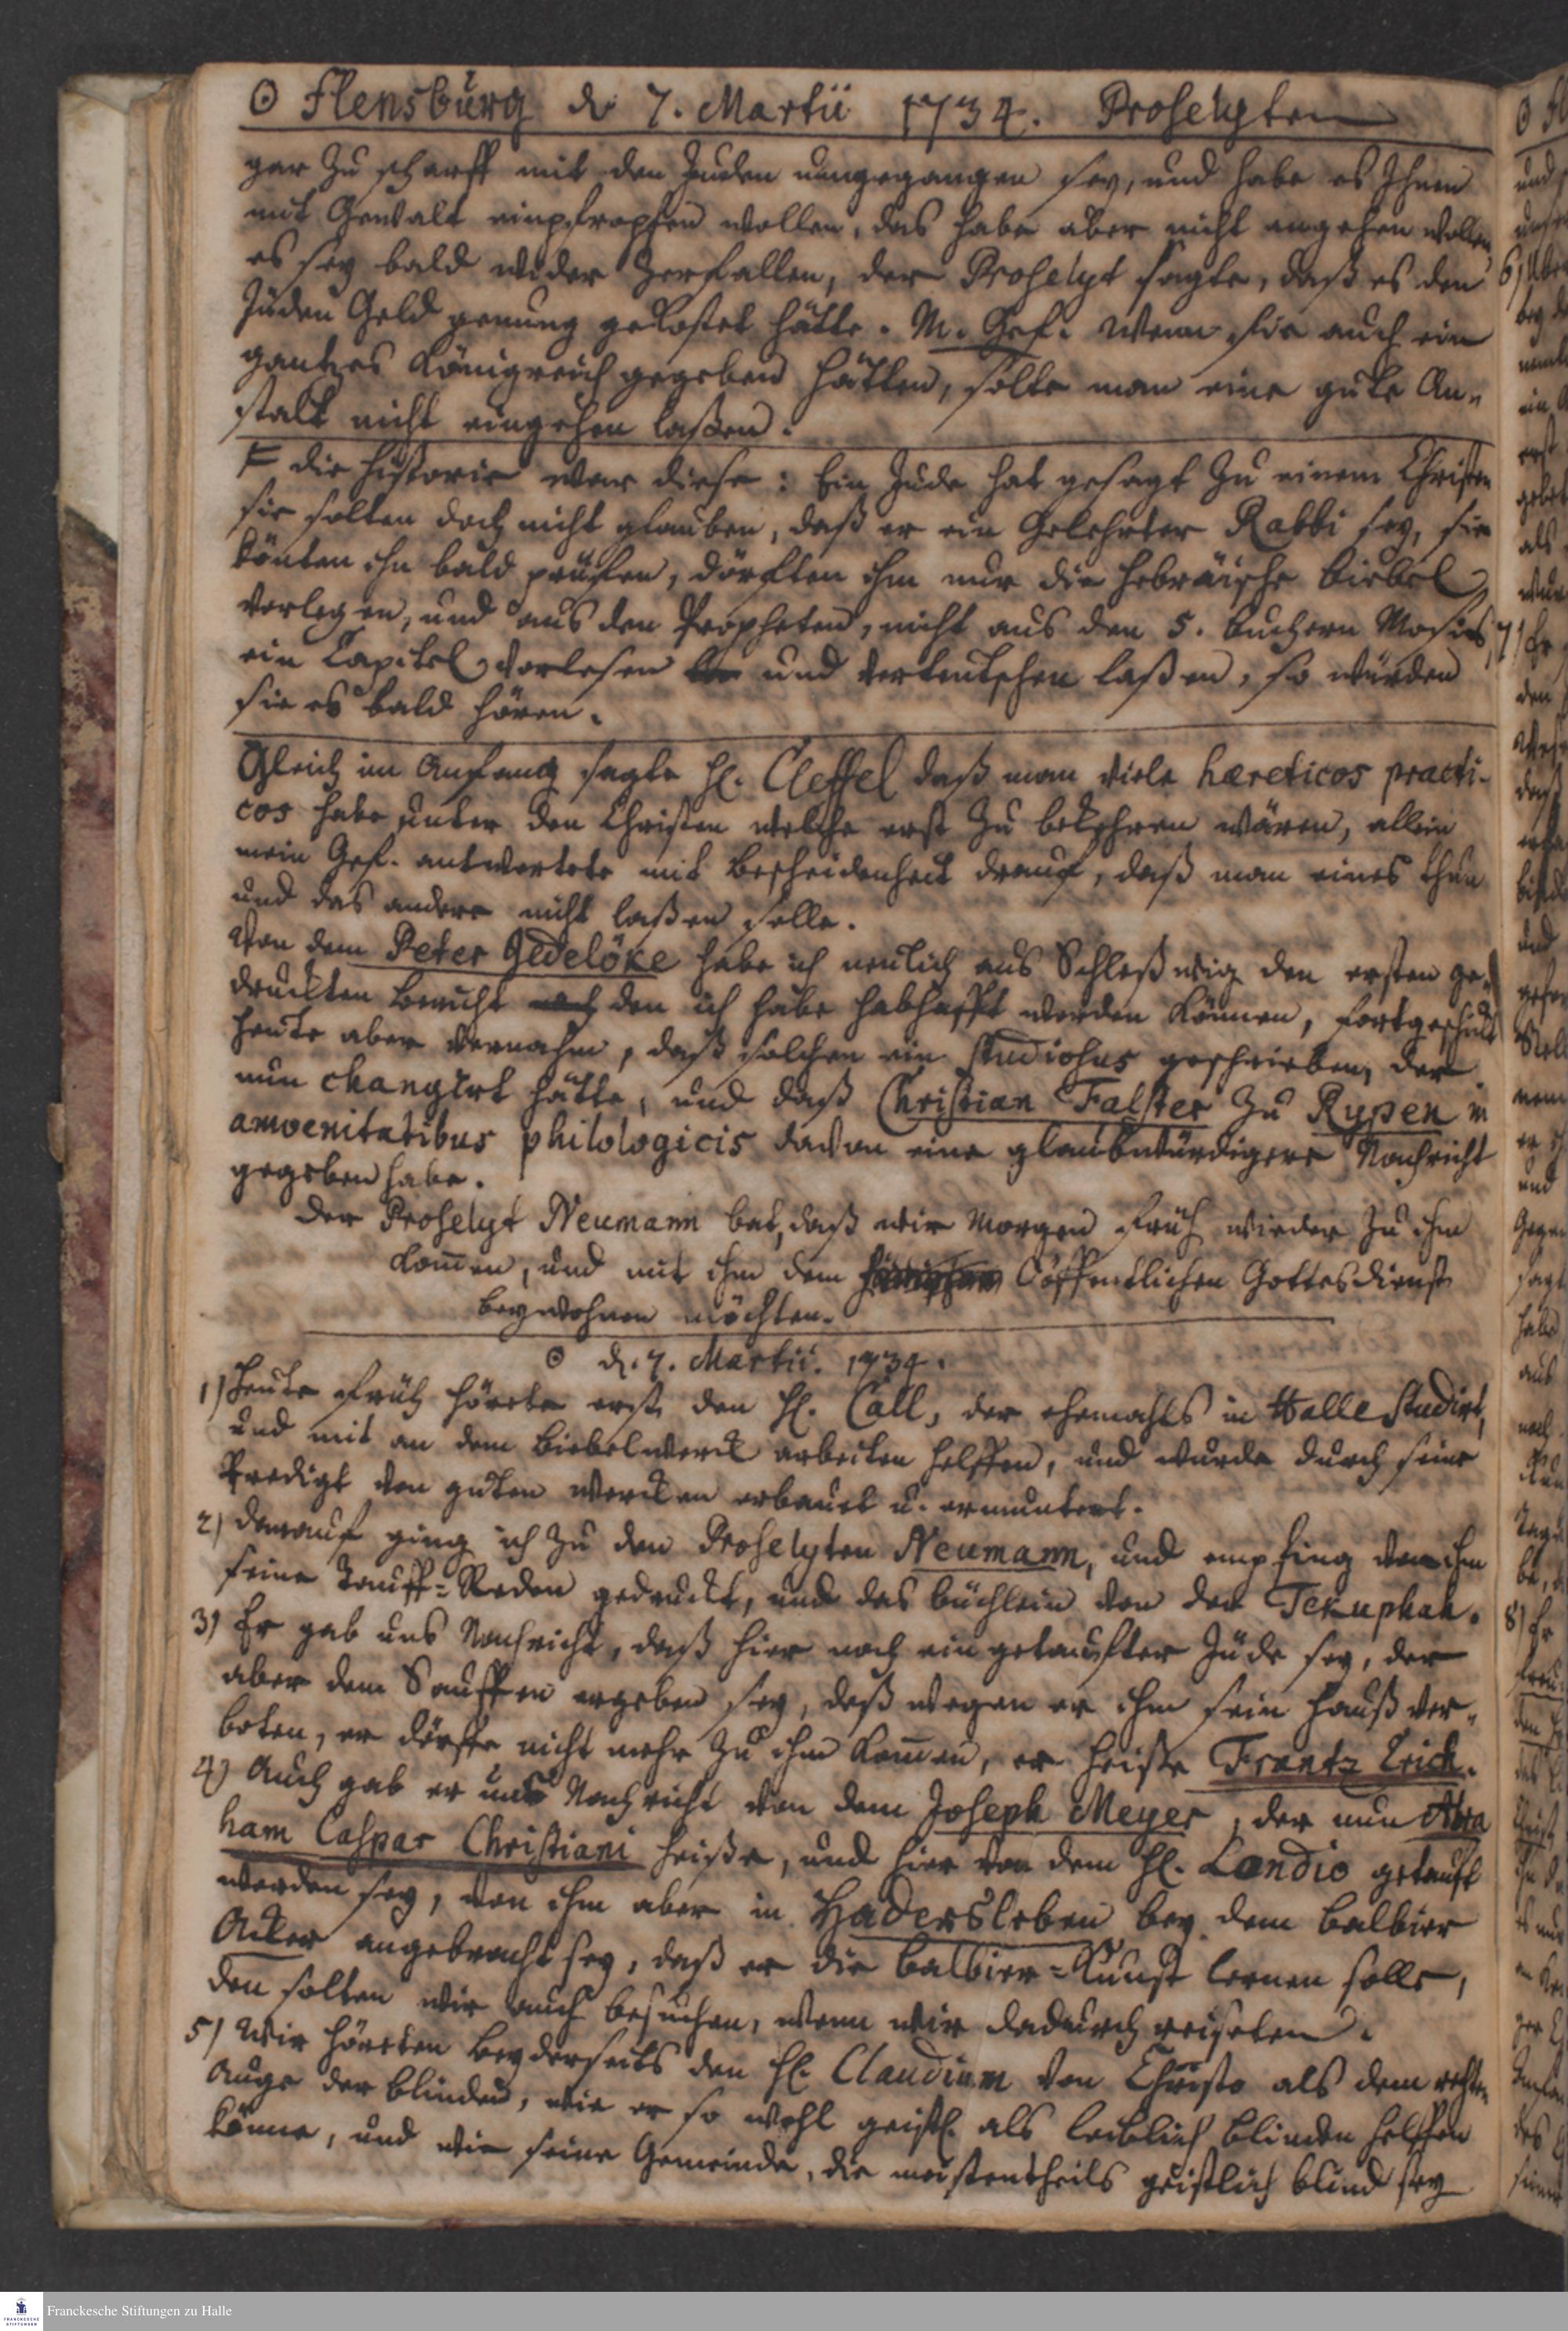 ⊙ Flensburg d. 7. Martii 1734. Proselyten
gar zu scharff mit den Juden umgegangen sey, und habe es Ihnen
mit Gewalt einpfropfen wollen, das habe aber nicht angehen wollen
es sey bald wieder zerfallen, der Proselyt sagte, daß es den
Jüden Geld genung gekostet hätte. M. Gef. Wenn sie auch ein
gantzes Königreich gegeben hätten, solte man eine gute An-
stalt nicht eingehen laßen.
F die Historie war diese: Ein Jude hat gesagt zu einem Christen
sie solten doch nicht glauben, daß er ein Gelehrter Rabbi sey, sie
könten ihn bald prüfen, dörften ihm nur die hebräische Biebel
vorlegen, und aus den Propheten, nicht aus den 5. Buchern Mosis,
ein Capitel vorlesen und verteutschen laßen, so würden
sie es bald hören.
Gleich im Anfang sagte H. Cleffel daß man viele hæreticos practi-
cos habe unter den Christen welche erst zu bekehren wären, allein
mein Gef. antwortete mit Bescheidenheit drauf, daß man eines thun
und das andere nicht laßen solle.
Von dem Peter Gedelöke habe ich neulich aus Schleßwig den ersten ge-
druckten Bericht den ich habe habhafft werden können, fortgeschickt
heute aber vernahm, daß solchen ein Studiosus geschrieben, der
nun changirt hätte, und daß Christian Falster zu Rypen in
amoenitatibus philologicis davon eine glaubwürdigere Nachricht
gegeben habe.
Der Proselyt Neumann bat, daß wir Morgen früh wieder zu ihm
kom̄en, und mit ihm dem öffentlichen Gottesdienst
beywohnen möchten.
⊙ d. 7. Martii. 1734.
1) Heute früh hörete erst den H. Call, der ehemahls in Halle studirt,
und mit an dem Biebelwerck arbeiten helffen, und wurde durch seine
Predigt von guten Wercken erbauet u. ermuntert.
2) Darauf ging ich zu dem Proselyten Neumann, und empfing von ihm
seine Tauff-Reden gedruckt, und das büchlein von der Tekuphah.
3) Er gab uns Nachricht, daß hier noch ein getauffter Jüde sey, der
aber dem Sauffen ergeben sey, deßwegen er ihm sein Hauß ver-
boten, er dörffe nicht mehr zu ihm kom̄en, er heiße Frantz Erich.
4) Auch gab er uns Nachricht von dem Joseph Meyer, der nun Abra
ham Caspar Christiani heiße, und hier von dem H. Londio getauft
worden sey, von ihm aber in Hadersleben bey dem Balbier
Acker angebracht sey, daß er die Balbier-Kunst lernen solle,
den solten wir auch besuchen, wenn wir dadurch reiseten.
5) Wir höreten beyderseits den H. Claudium von Christo als dem rechten
Auge der blinden, wie er so wohl geistl. als leiblich blinden helffen
könne, und wie seine Gemeinde, die meistentheils geistlich blind sey
Franckesche Stiftungen zu Halle